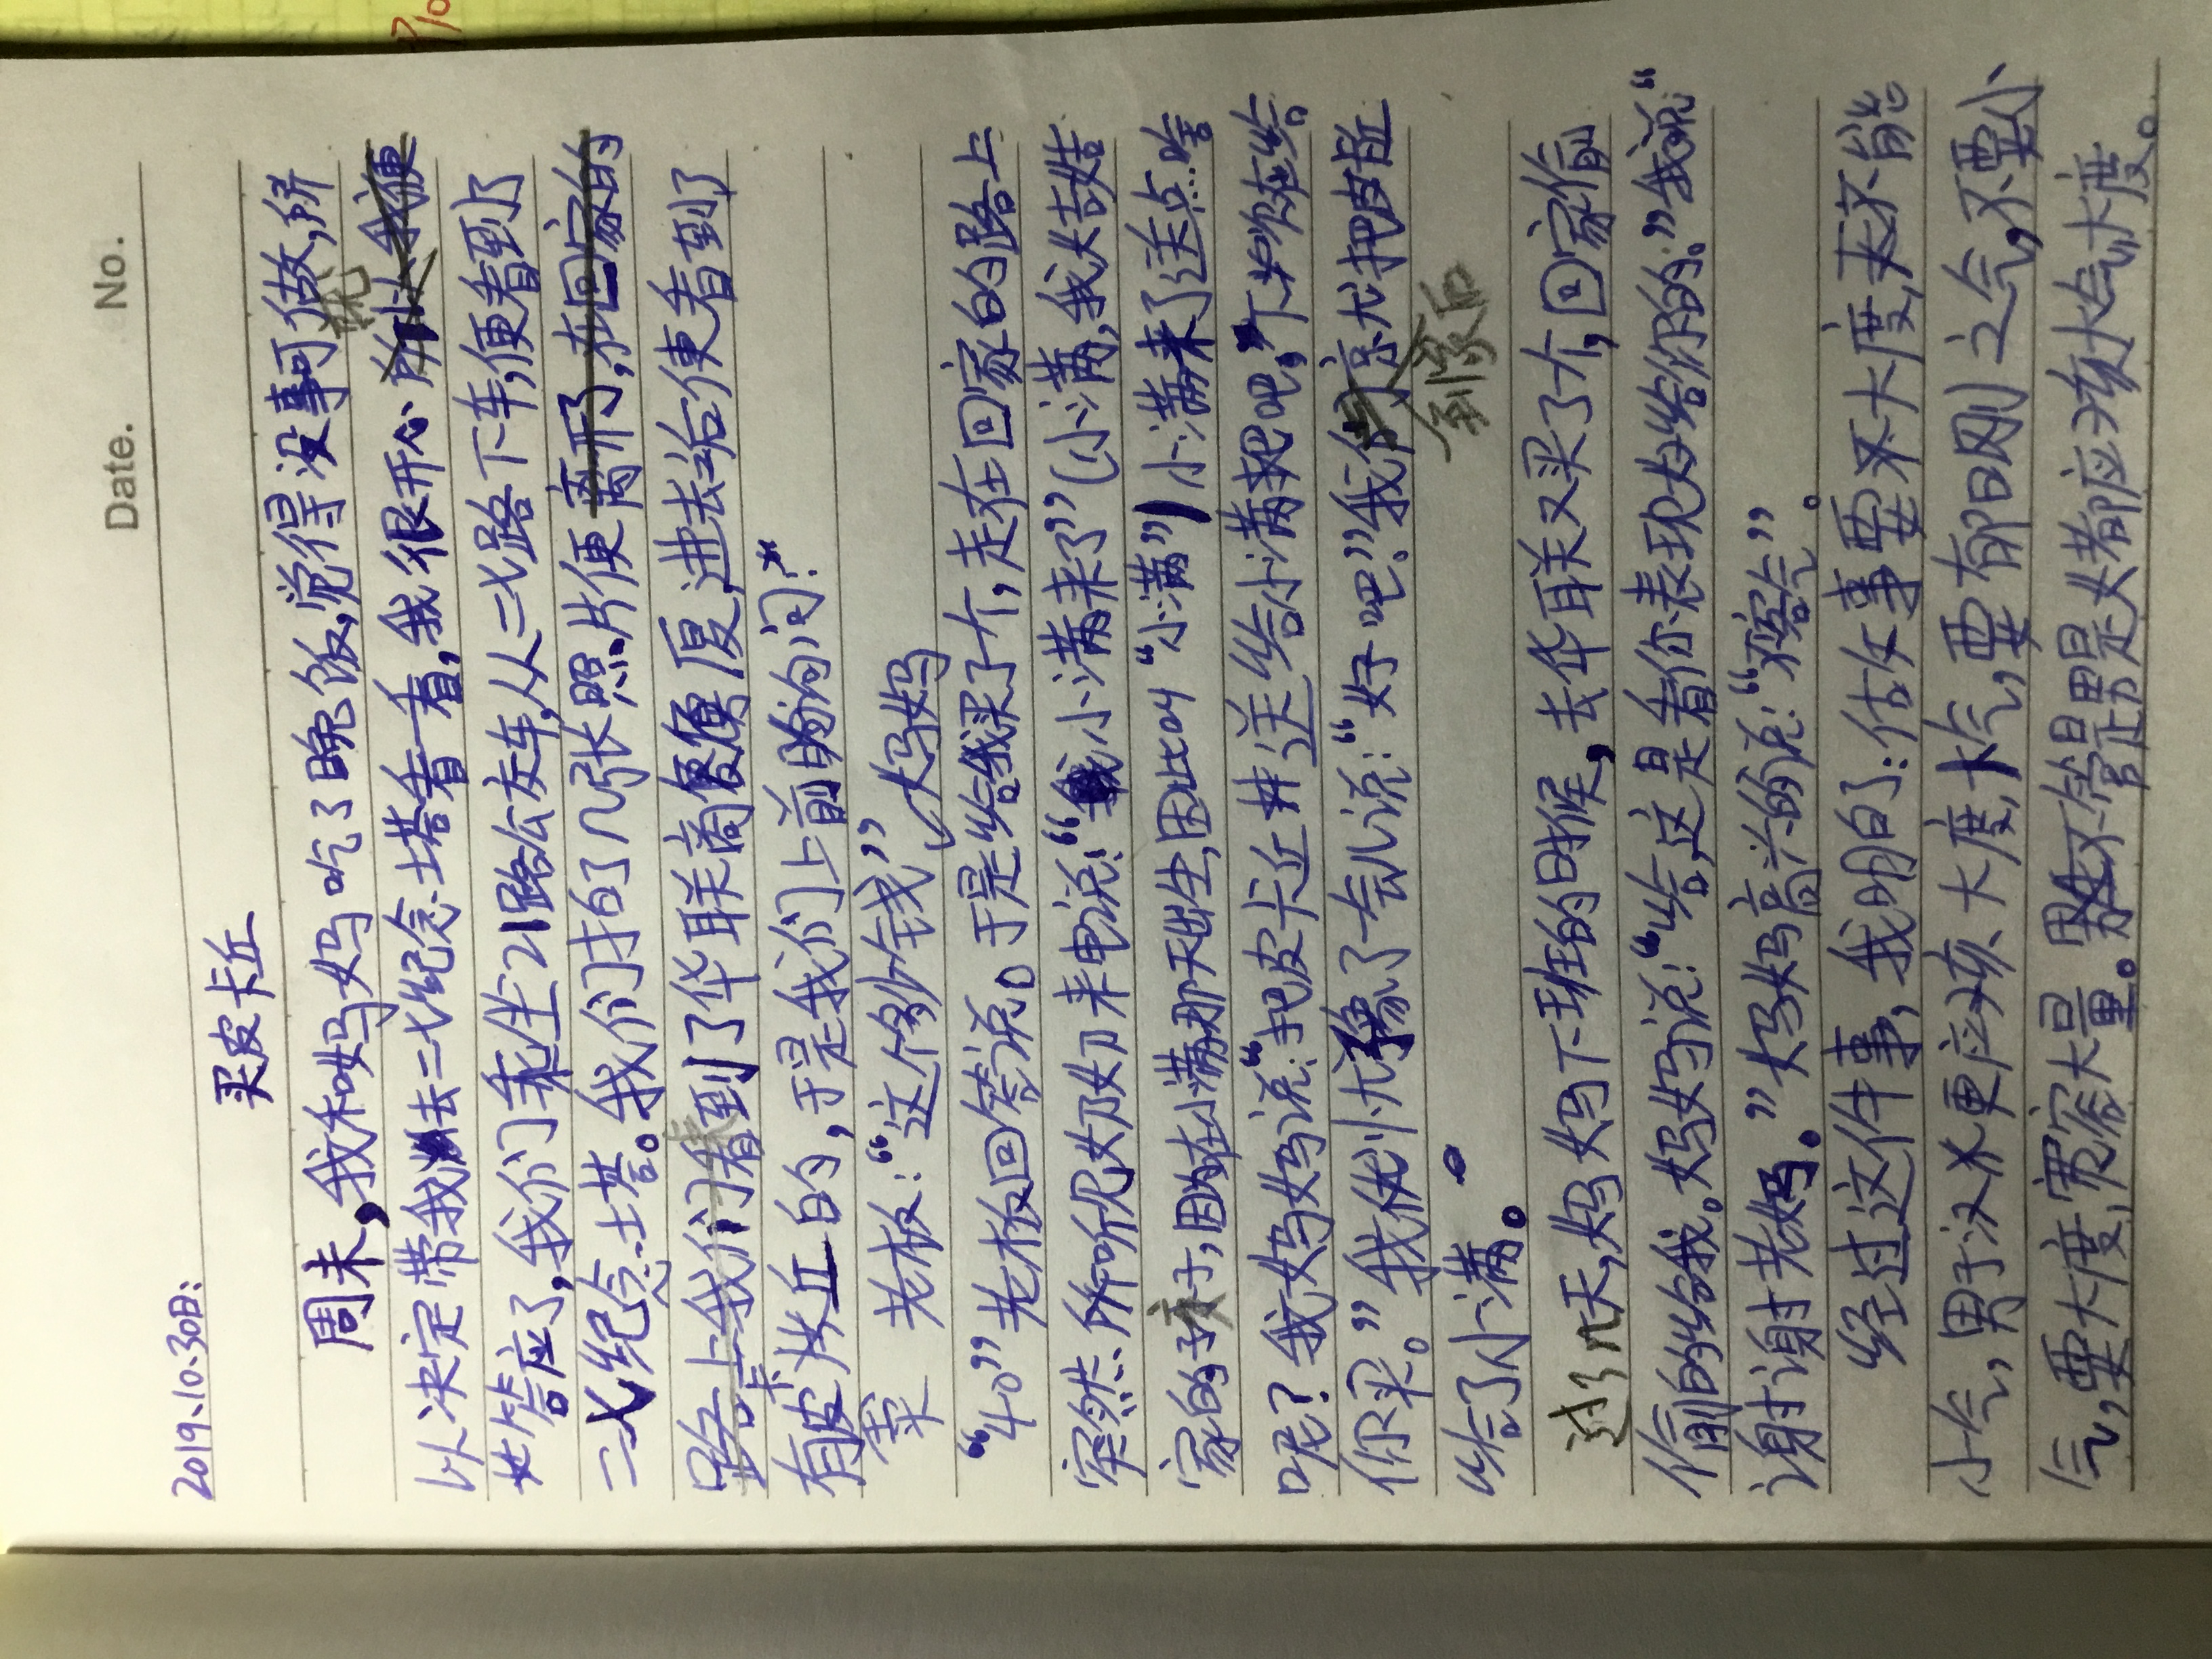 Date. No.
2019.10.30日:
买皮卡丘
周末,我和妈妈吃了晚饭,觉得没事可做,所
以决定带我去二七纪念塔看一看,我很开心 所以我便
就
答应了,我们乘坐21路公交车,从二七路下车,便看到了
二七纪念塔。我们拍了几张照片便离开了,在回家的
路上我们看到了华联商厦,进去后便看到了
卡
有皮丘的,于是我们上前询问?"
老板:"这个多少钱"
妈妈
"40"老板回答说。于是给我买了个,走在回家的路上
突然
奶奶来电说:"小满来了"(小满,我大姑
家的孩子,因在小满那天出生,因此叫"小满")小满来了送点啥
呢?我妈妈说:"把皮卡丘送给小满吧,下次在给
你买。"我犹豫了一会儿说:"好吧!"我们
把皮卡丘
到家后
给了小满。
过了几天,妈妈下班的时候,去华联又买了个,回家偷
偷的给我。妈妈说:"给,这是看你表现好给你的。"我说:"
谢谢老妈。"妈妈高兴的说:"不客气"
经过这件事,我明白了:做事要大度,不能
小气,男子汉更应该大度,大气,要有阳刚之气,不要小
气,要大度,宽宏大量。不管是男是女都应该大气,大度。